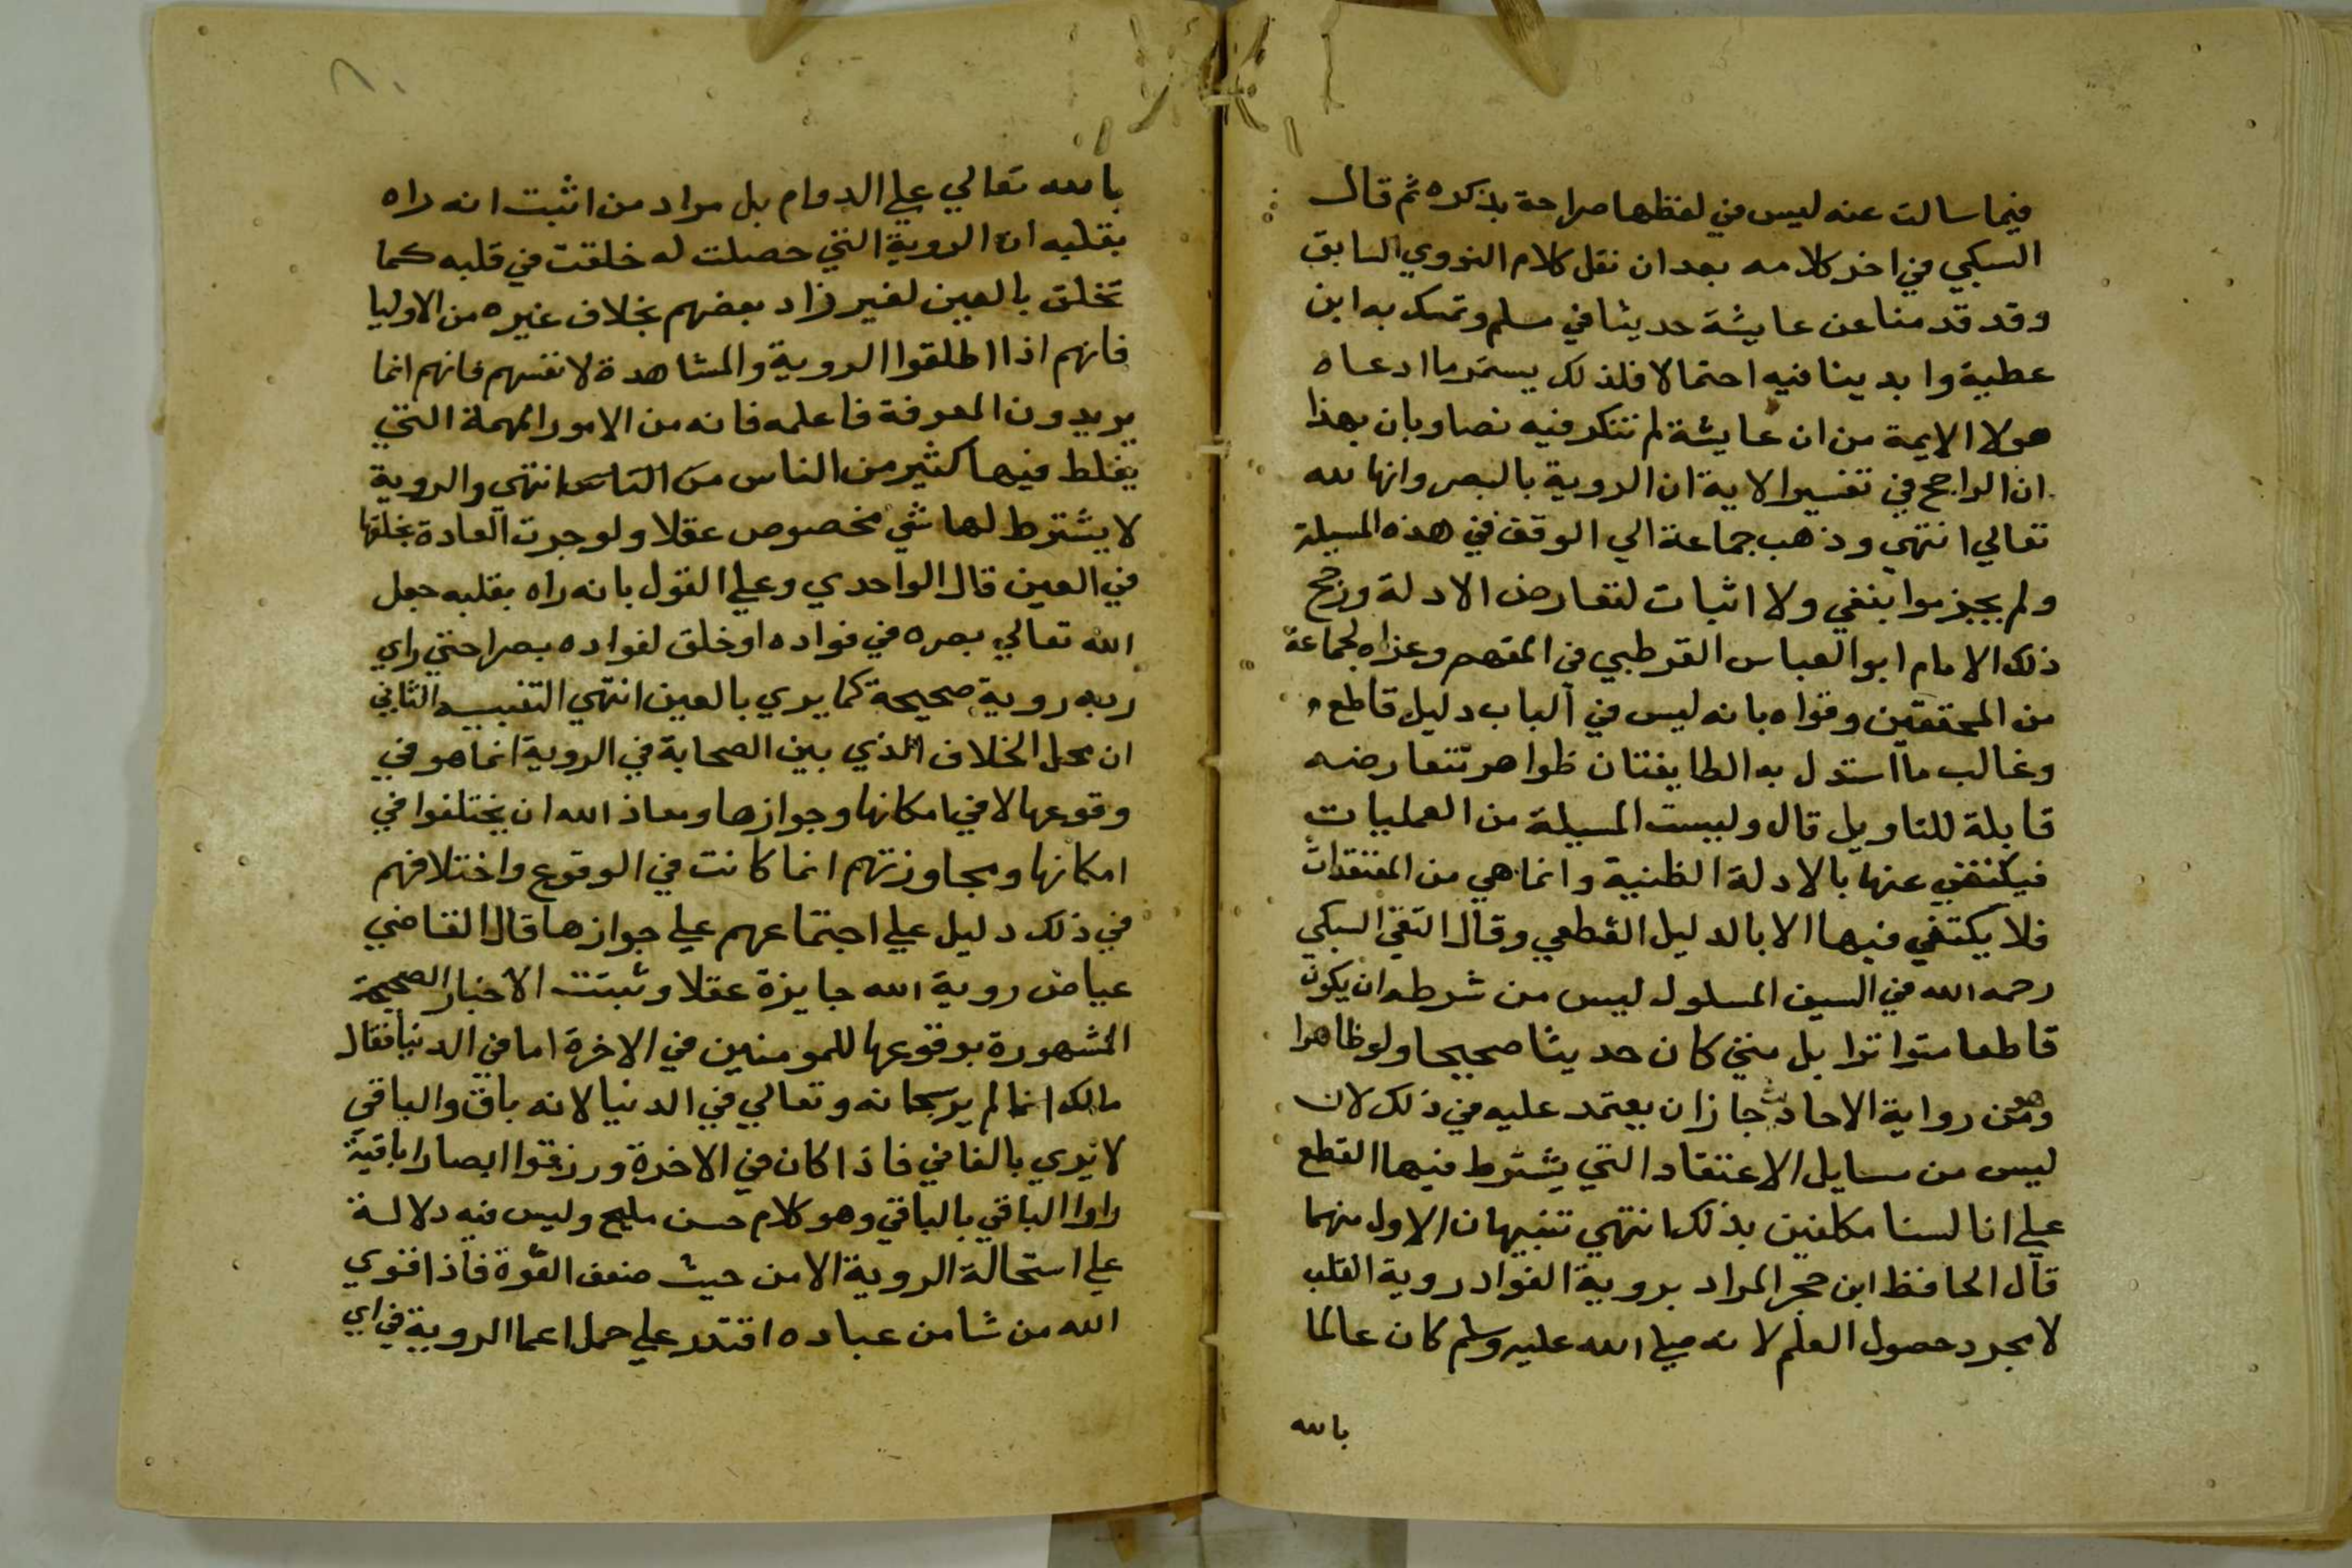 فيما سالت عنه ليس في لفظها صراحة بذكره ثم قال
السبكي في اخر كلامه بعد ان نقل كلام النووي السابق
وقد قدمنا عن عايشة حديثا في مسلم وتمسك به ابن
عطية وابدينا فيه احتمالا فلذلك يستمر ما ادعاه
هولا الايمة من ان عايشة لم تنكر فيه نصا وبان بهذا
ان الراجح في تفسير الاية ان الروية بالبصر وانها لله
تعالي انتهي وذهب جماعة الي الوقف في هذه المسيلة
ولم يجزموا بنفي ولا اثبات لتعارض الادلة ورجح
ذلك الامام ابو العباس القرطبي في المفهم وعزاه لجماعة
من المحققين وقواه بانه ليس في الباب دليل قاطع
وغالب ما استدل به الطايفتان ظواهر تتعارضه
قابلة للتاويل قال وليست المسيلة من العمليات
فيكتفي عنها بالادلة الظنية وانما هي من المعتقدات
فلا يكتفي فيها الا بالدليل القطعي وقال التقي السبكي
رحمه الله في السيف المسلول ليس من شرطه ان يكون
قاطعا متواترا بل متي كان حديثا صحيحا ولو ظاهرا
وهو من رواية الاحاد جاز ان يعتمد عليه في ذلك لان
ليس من مسايل الاعتقاد التي يشترط فيها القطع
علي انا لسنا مكلفين بذلك انتهي تنبيهان الاول منهما
قال الحافظ ابن حجر المراد بروية الفواد روية القلب
لا مجرد حصول العلم لانه صلي الله عليه وسلم كان عالما
بالله
٨٠
بالله تعالي علي الدوام بل مراد من اثبت انه راه
بقلبه ان الروية التي حصلت له خلقت في قلبه كما
تخلق بالعين لغير زاد بعضهم بخلاف غيره من الاوليا
فانهم اذا اطلقوا الروية والمشاهدة لانفسهم فانهم انما
يريدون المعرفة فاعلمه فانه من الامور المهمة التي
يغلط فيها كثير من الناس من الناس انتهي والروية
لا يشترط لها شي مخصوص عقلا ولو جرت العادة بخلقها
في العين قال الواحدي وعلي القول بانه راه بقلبه جعل
الله تعالي بصره في فواده او خلق لفواده بصرا حتي راي
ربه روية صحيحة كما يري بالعين انتهي التنبيه الثاني
ان محل الخلاف الذي بين الصحابة في الروية انما هو في
وقوعها لا في امكانها وجوازها ومعاذ الله ان يختلفوا في
امكانها ومجاوزتهم انما كانت في الوقوع واختلافهم
في ذلك دليل علي اجتماعهم علي جوازها قال القاضي
عياض روية الله جايزة عقلا وثبتت الاخبار الصحيحة
المشهورة بوقوعها للمومنين في الاخرة اما في الدنيا فقال
مالك انما لم ير سبحانه وتعالي في الدنيا لانه باق والباقي
لا يري بالفاني فاذا كان في الاخرة ورزقوا ابصارا باقية
راوا الباقي بالباقي وهو كلام حسن مليح وليس فيه دلالة
علي استحالة الروية الا من حيث ضعف القوة فاذا قوي
الله من شا من عباده اقتدر علي حمل اعبا الروية في اي